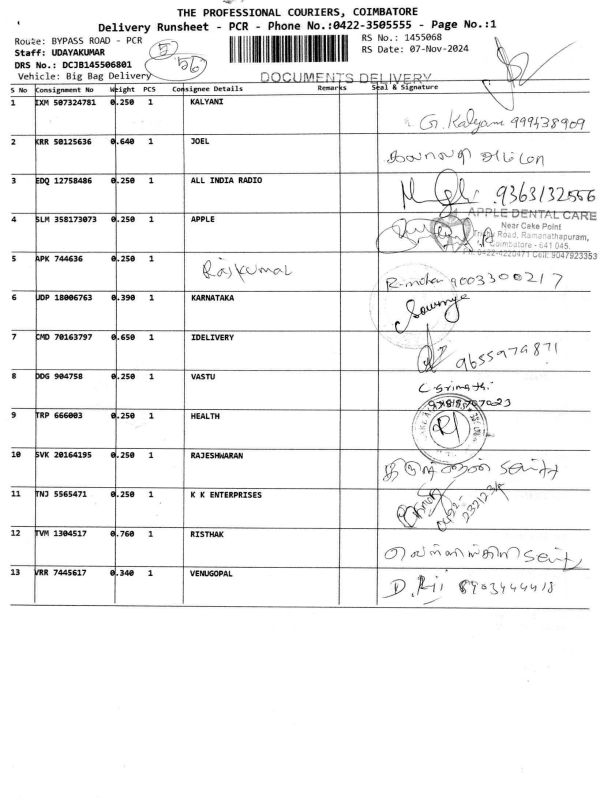 THE PROFESSIONAL COURIERS, COIMBATORE
Delivery Runsheet - PCR - Phone No.:0422-3505555 - Page No.:1
Route: BYPASS ROAD - PCR
RS No.: 1455068
Staff: UDAYAKUMAR
RS Date: 07-Nov-2024
DRS No.: DCJB145506801
Vehicle: Big Bag Delivery
DOCUMENTS DELIVERY
S No Consignment No Weight PCS Consignee Details Remarks Seal & Signature
1 IXM 507324781 0.250 1 KALYANI
G. Kalyani 999438909
2 KRR 50125636 0.640 1 JOEL
3 EDQ 12758486 0.250 1 ALL INDIA RADIO
9363132556
4 SLM 358173073 0.250 1 APPLE
APPLE DENTAL CARE
Near Cake Point
Trichy Road, Ramanathapuram,
Coimbatore - 641 045.
0422-4220471 Cell: 9047923353
5 APK 744636 0.250 1
Rajkumar
R-mohan 9003300217
6 UDP 18006763 0.390 1 KARNATAKA
Sowmya
7 CMD 70163797 0.650 1 IDELIVERY
9655979871
8 DDG 904758 0.250 1 VASTU
C. Srimathi
9 TRP 666003 0.250 1 HEALTH
10 SVK 20164195 0.250 1 RAJESHWARAN
11 TNJ 5565471 0.250 1 K K ENTERPRISES
0422-
12 TVM 1304517 0.760 1 RISTHAK
13 VRR 7445617 0.340 1 VENUGOPAL
D. Riji 8903444418